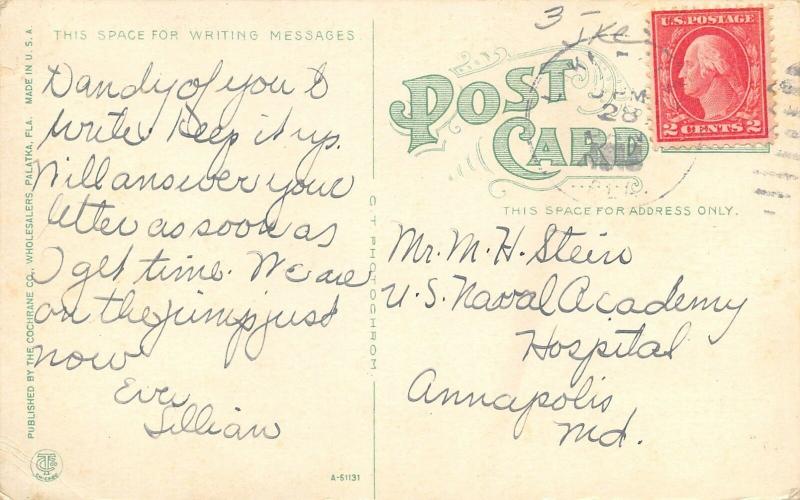 THIS SPACE FOR WRITING MESSAGES.
Dandy of you to
write. Keep it up.
Will answer your
letter as soon as
I get time. We are
on the jump just
now
Ever
Lillian
PUBLISHED BY THE COCHRANE CO., WHOLESALERS, PALATKA, FLA. MADE IN U.S.A.
C T PHOTOCHROM
A-51131
CHICAGO
3
POST
CARD
28
U.S. POSTAGE
2 CENTS 2
THIS SPACE FOR ADDRESS ONLY.
Mr. M. H. Stein
U.S. Naval Academy
Hospital
Annapolis
Md.